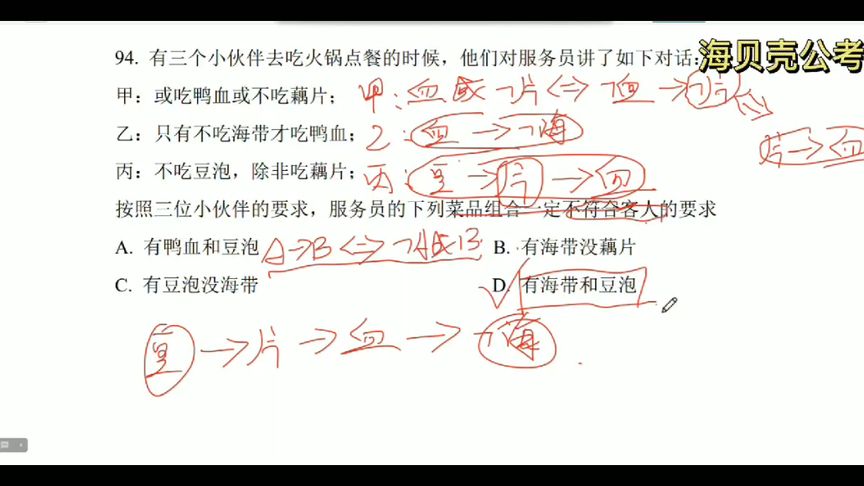 海贝壳公考
94. 有三个小伙伴去吃火锅点餐的时候，他们对服务员讲了如下对话：
甲：或吃鸭血或不吃藕片；
甲：血或¬片⇔¬血→¬片⇔
片→血
乙：只有不吃海带才吃鸭血；
乙：血→¬海
丙：不吃豆泡，除非吃藕片；
丙：豆→片→血
按照三位小伙伴的要求，服务员的下列菜品组合一定不符合客人的要求
A. 有鸭血和豆泡
A→B⇔¬A或B
B. 有海带没藕片
C. 有豆泡没海带
D. 有海带和豆泡
豆→片→血→¬海